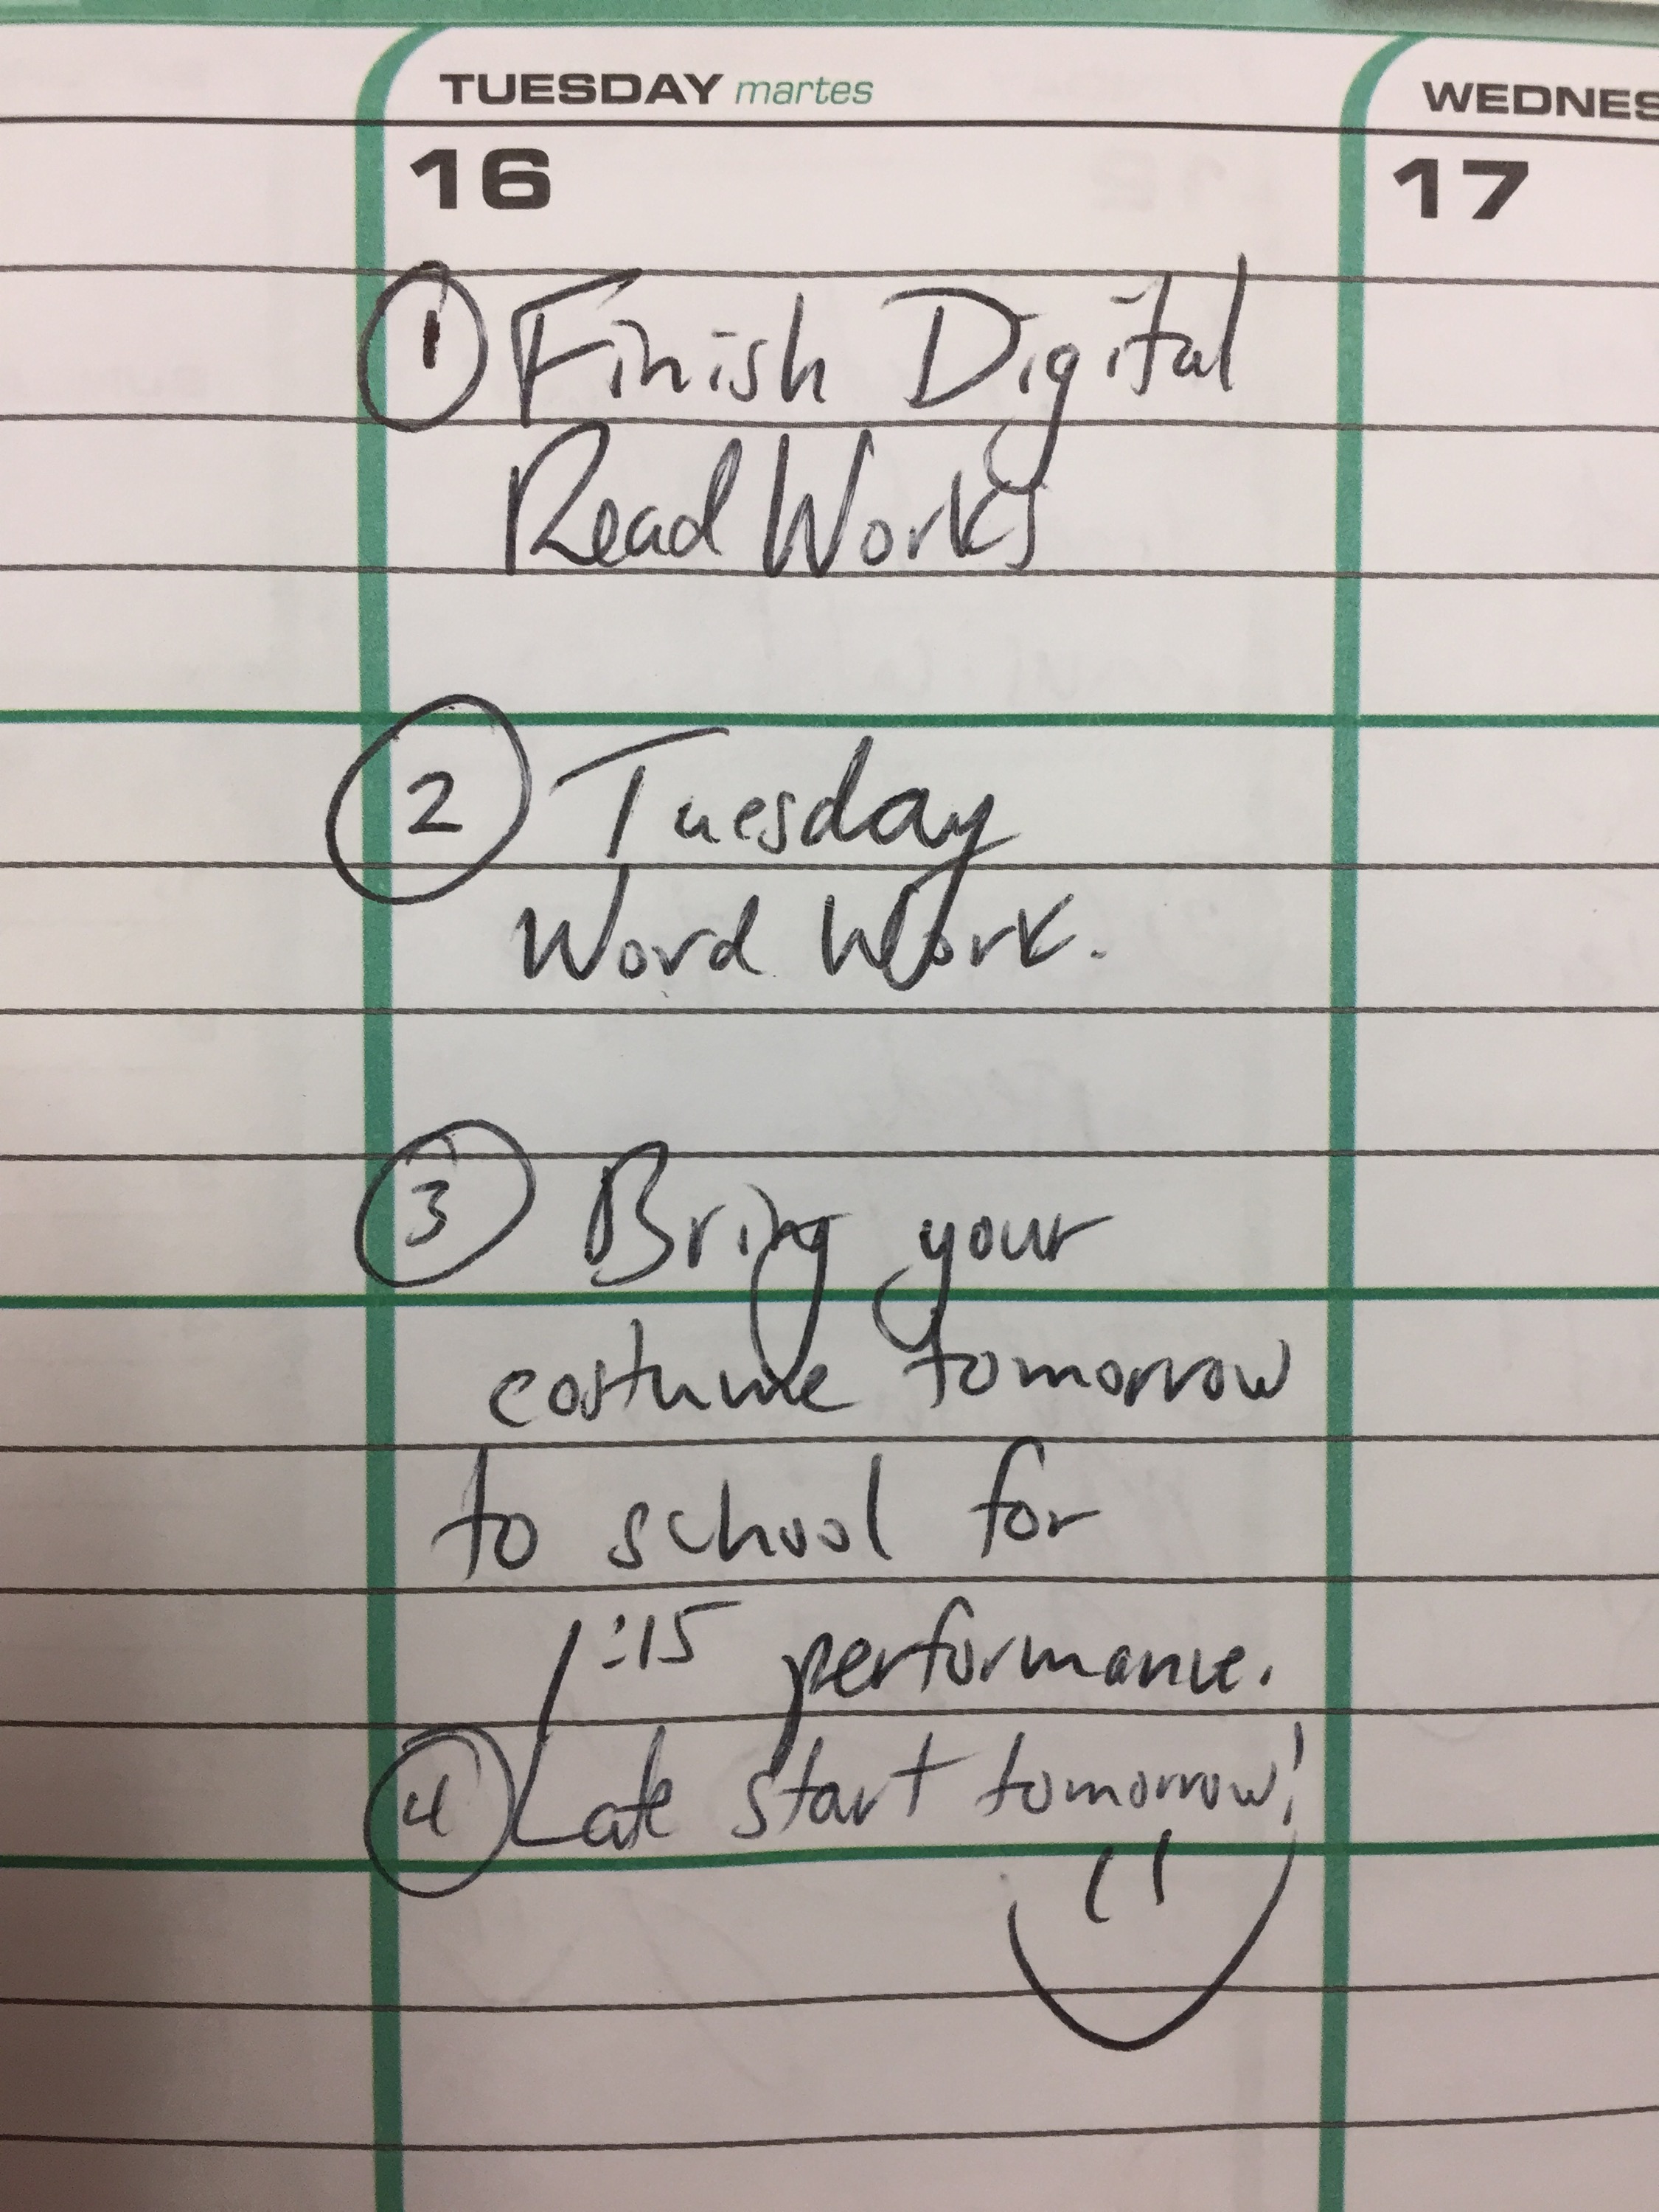 TUESDAY martes
WEDNES
16
17
1 Finish Digital
ReadWorks
2 Tuesday
Word Work.
3 Bring your
costume tomorrow
to school for
1:15 performance.
4 Late start tomorrow!